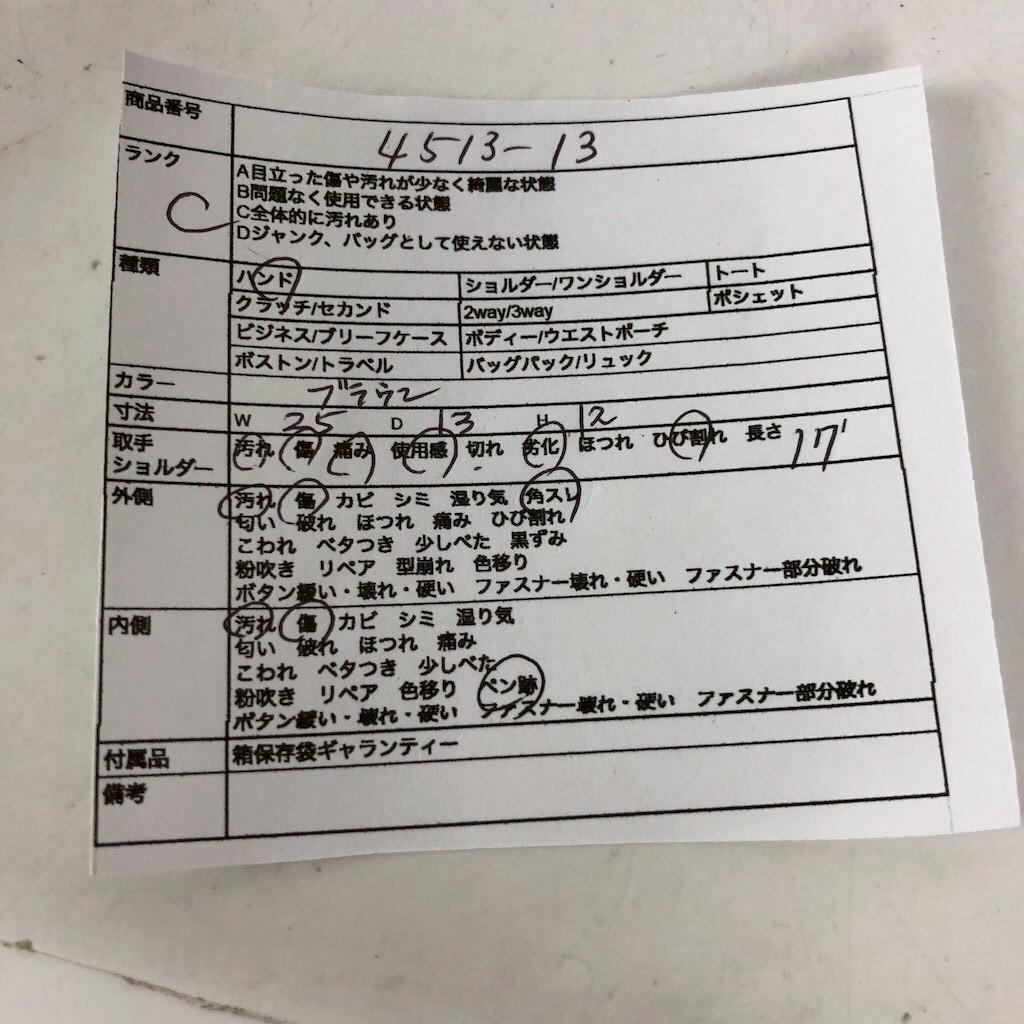 商品番号 4513-13
ランク C
A目立った傷や汚れが少なく綺麗な状態
B問題なく使用できる状態
C全体的に汚れあり
Dジャンク、バッグとして使えない状態
種類 ハンド ショルダー/ワンショルダー トート
クラッチ/セカンド 2way/3way ポシェット
ビジネス/ブリーフケース ボディー/ウエストポーチ
ボストン/トラベル バッグパック/リュック
カラー ブラウン
寸法 W 25 D 13 H 12
取手 汚れ 傷 痛み 使用感 切れ 劣化 ほつれ ひび割れ 長さ 17
ショルダー
外側 汚れ 傷 カビ シミ 湿り気 角スレ
匂い 破れ ほつれ 痛み ひび割れ
こわれ ベタつき 少しべた 黒ずみ
粉吹き リペア 型崩れ 色移り
ボタン緩い・壊れ・硬い ファスナー壊れ・硬い ファスナー部分破れ
内側 汚れ 傷 カビ シミ 湿り気
匂い 破れ ほつれ 痛み
こわれ ベタつき 少しべた
粉吹き リペア 色移り ペン跡
ボタン緩い・壊れ・硬い ファスナー壊れ・硬い ファスナー部分破れ
付属品 箱保存袋ギャランティー
備考